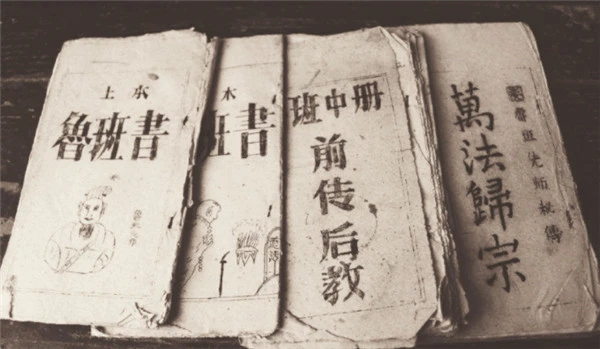 上本
魯班書
班書
班中册
前传后教
萬法歸宗
先师秘傳